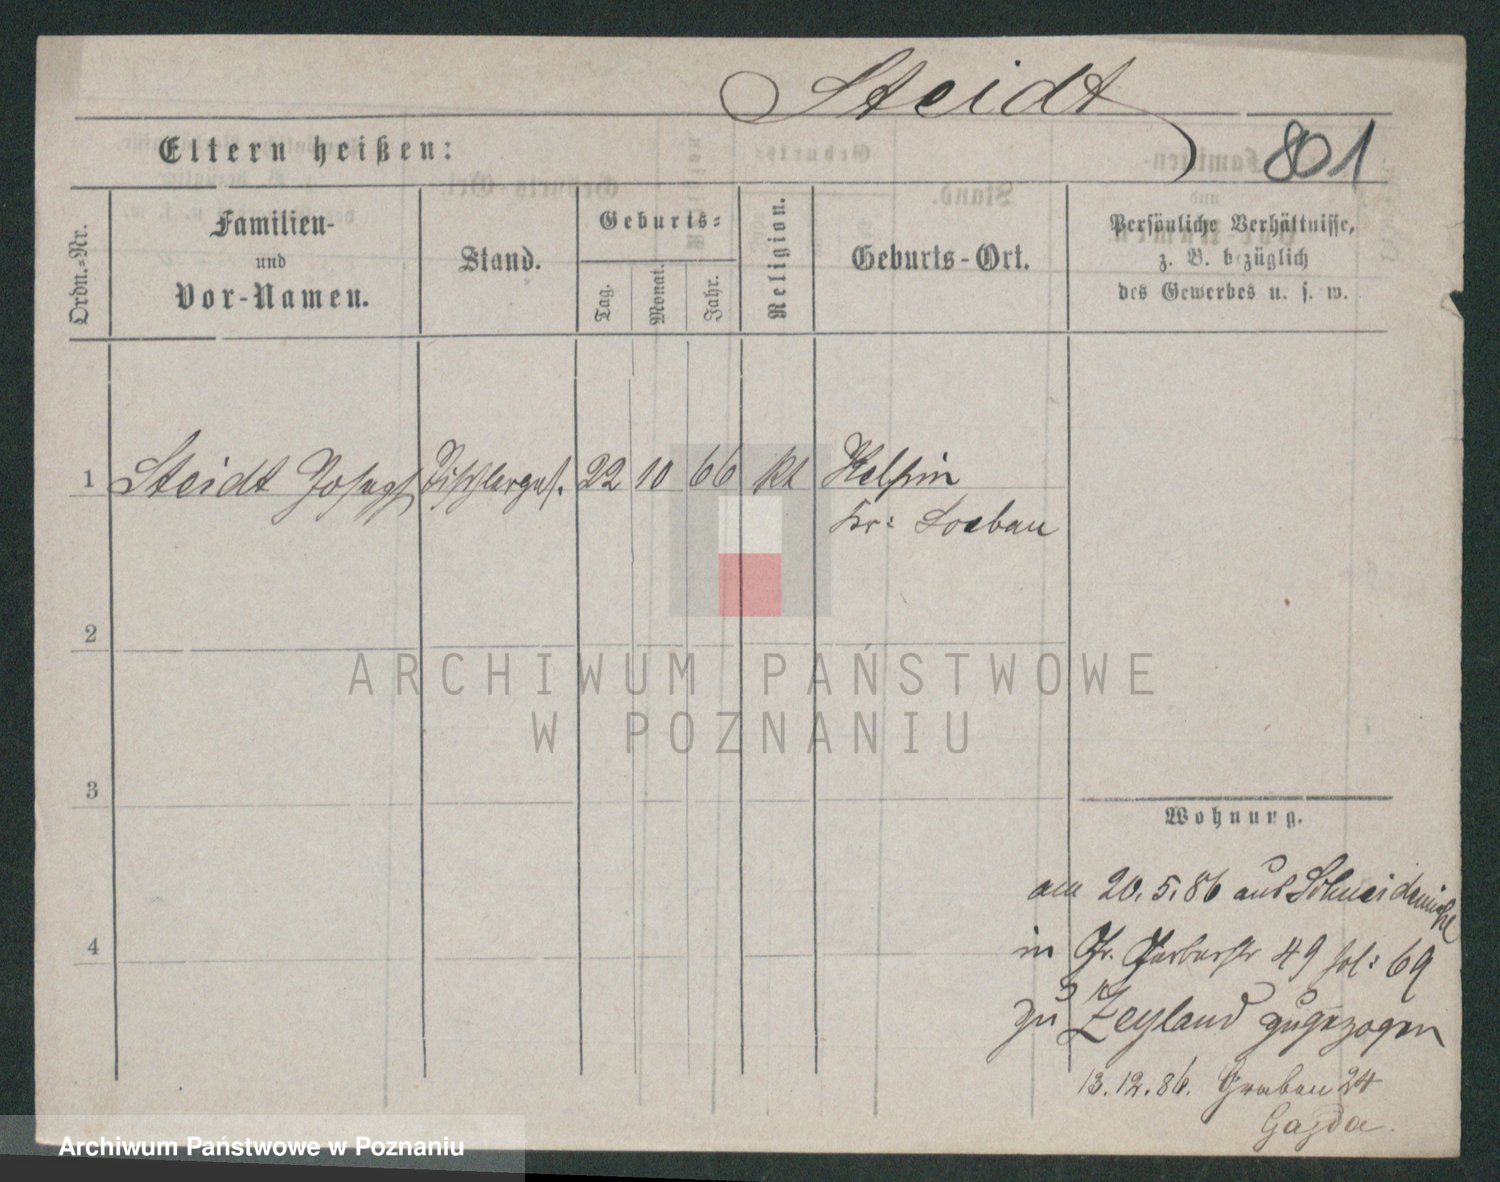 Steidt
801
Eltern heißen:
Ordn.=Nr.
Familien-
und
Vor-Namen.
Stand.
Geburts=
Tag.
Monat.
Jahr.
Religion.
Geburts-Ort.
Persönliche Verhältnisse,
z. B. bezüglich
des Gewerbes u. s. w.
1 Steidt Joseph Tischlerges. 22 10 66 kt Kelpin
Kr: Loebau
2
3
4
ARCHIWUM PAŃSTWOWE
W POZNANIU
Wohnung.
am 20.5.86 aus Schneidemühl
in Gr. Gerberstr 49 fol: 69
zu Zeyland zugezogen
13.12.86. Graben 24
Gajda.
Archiwum Państwowe w Poznaniu